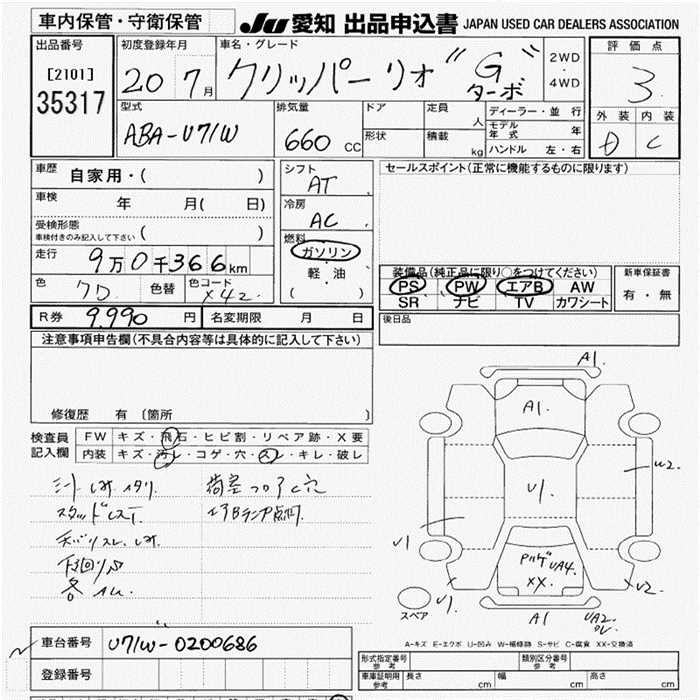 車内保管・守衛保管
JU 愛知 出品申込書 JAPAN USED CAR DEALERS ASSOCIATION
出品番号
[2101]
35317
初度登録年月
20 7月
車名・グレード
クリッパーリオ "G"
ターボ
2WD
・
4WD
評価点
3
外装 内装
D C
型式
ABA-U71W
排気量
660 CC
ドア
形状
定員 人
積載 kg
ディーラー・並行
モデル年式 年
ハンドル 左・右
車歴 自家用・( )
車検 年 月( 日)
受検形態
車検付きのみ記入して下さい ( )
走行 9万0千366km
色 7D 色替 色コード X42
シフト
AT
冷房
AC
燃料
ガソリン
軽油
( )
セールスポイント(正常に機能するものに限ります)
装備品(純正品に限り○をつけてください)
PS PW エアB AW
SR ナビ TV カワシート
新車保証書
有・無
R券 9.990 円 名変期限 月 日
後日品
注意事項申告欄(不具合内容等は具体的に記入して下さい)
修復歴 有 〔箇所 〕
検査員
記入欄
FW キズ・飛石・ヒビ割・リペア跡・X要
内装 キズ・汚レ・コゲ・穴・スレ・キレ・破レ
荷室フロアC穴
エアBランプ点灯
A1
A1.
U1.
U2.
U1
PリゲUA4.
XX.
U1.
U2.
A1
UA2
スペア
A-キズ E-エクボ U-凹み W-補修跡 S-サビ C-腐食 XX-交換済
車台番号 U71W-0200686
登録番号
形式指定番号
参考
類別区分番号
参考
車庫証明用
参考
長さ cm 幅 cm 高さ cm